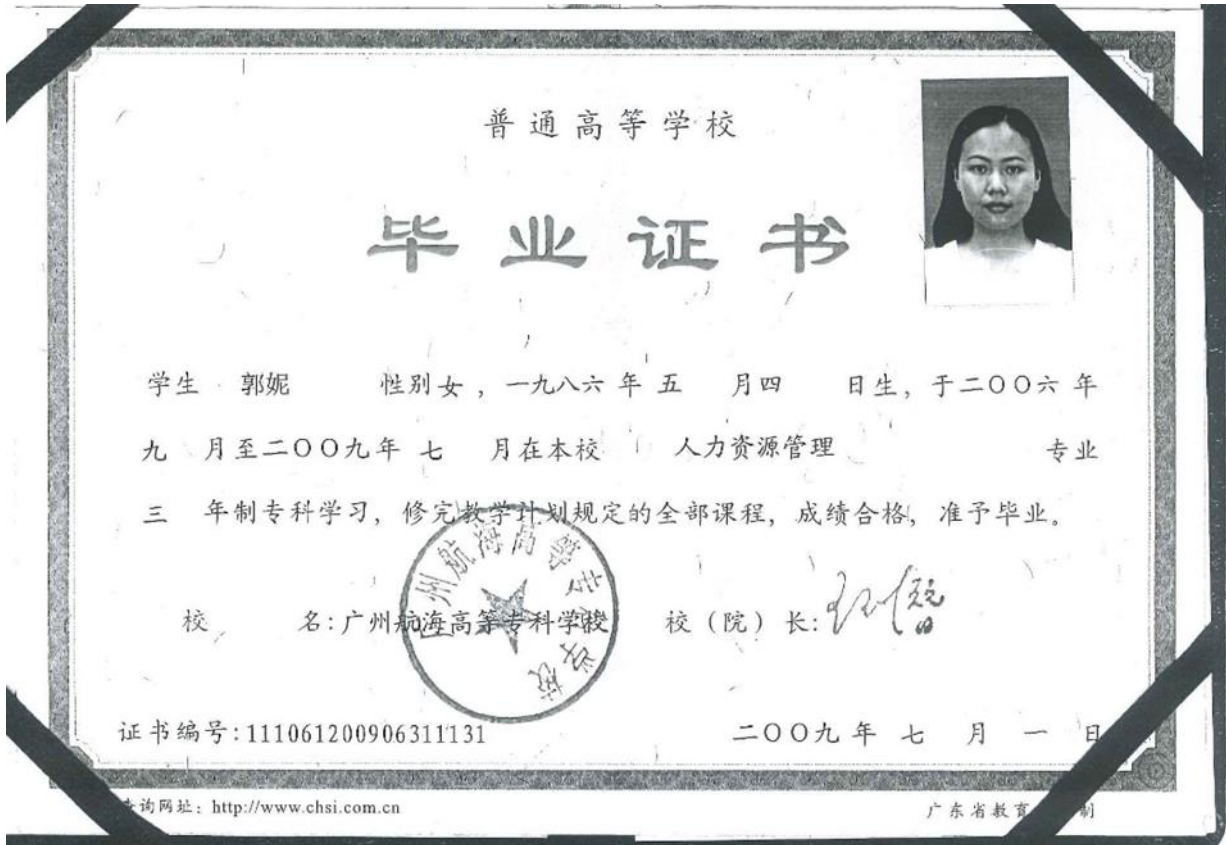 普通高等学校
毕业证书
学生 郭妮 性别女，一九八六年五月四日生，于二〇〇六年
九月至二〇〇九年七月在本校 人力资源管理 专业
三年制专科学习，修完教学计划规定的全部课程，成绩合格，准予毕业。
校 名：广州航海高等专科学校 校（院）长：
广州航海高等专科学校
证书编号：111061200906311131 二〇〇九年七月一日
查询网址：http://www.chsi.com.cn 广东省教育 制